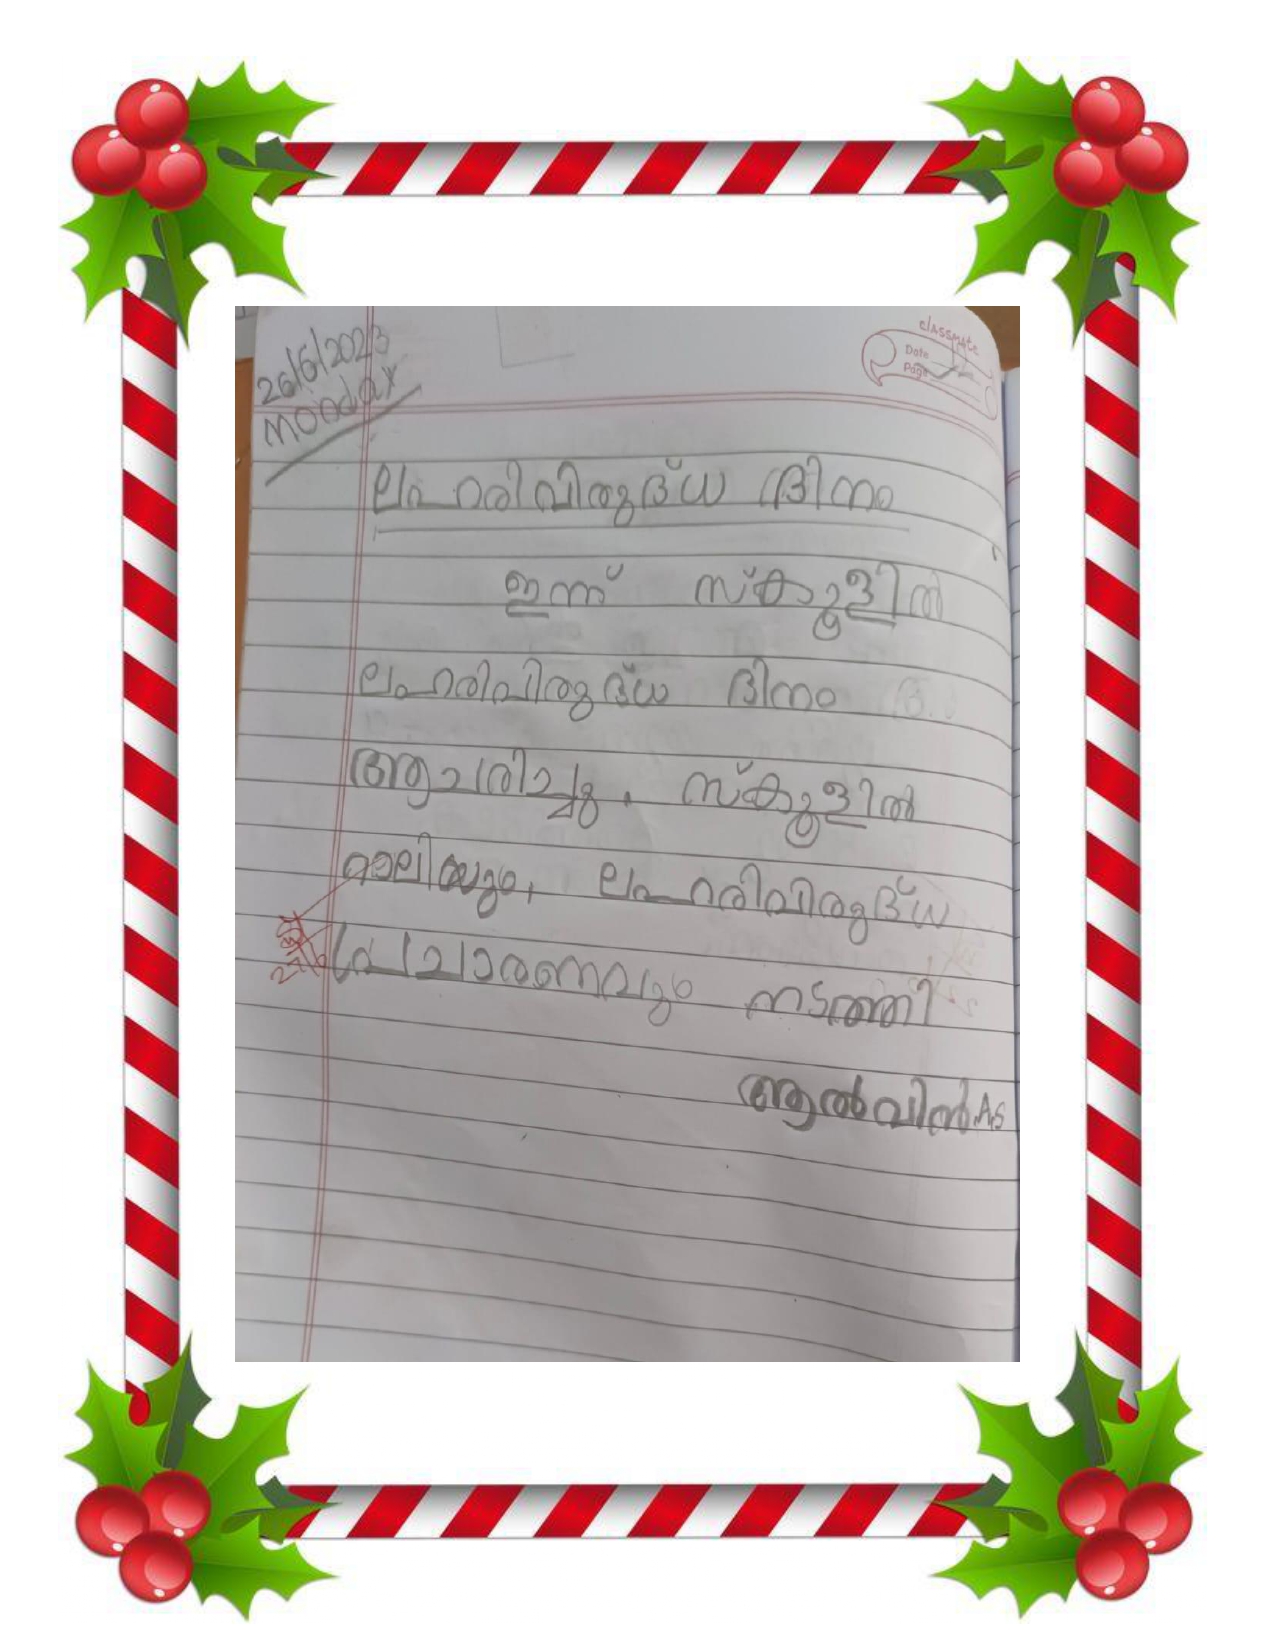 26/6/2023
Monday
classmate
Date
Page
ലഹരിവിരുദ്ധ ദിനം
ഇന്ന് സ്കൂളിൽ
ലഹരിവിരുദ്ധ ദിനം
ആചരിച്ചു. സ്കൂളിൽ
റാലിയും, ലഹരിവിരുദ്ധ
പ്രചാരണവും നടത്തി
ആൽവിൻ.A.S